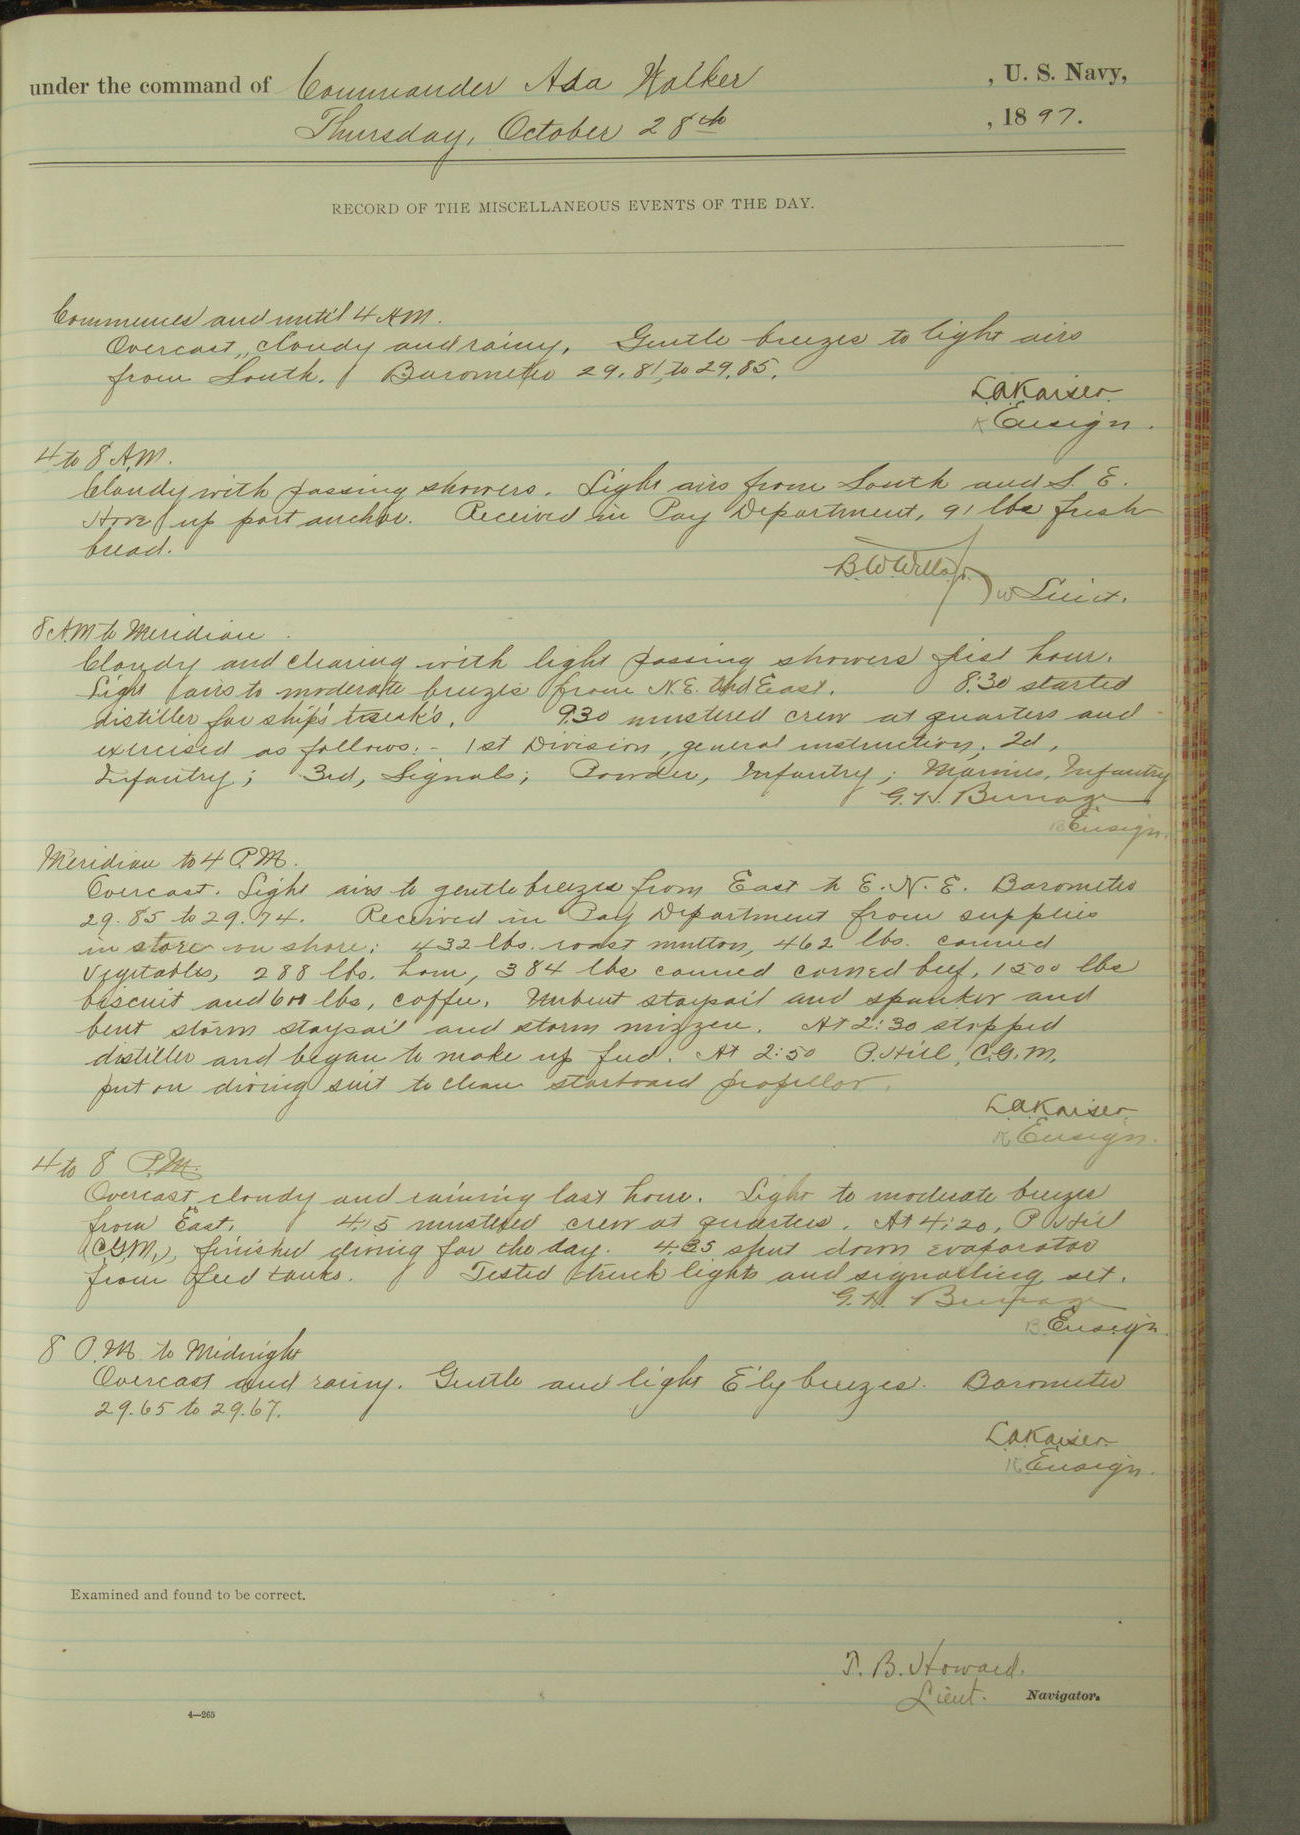 under the command of Commander Asa Walker , U. S. Navy,
Thursday, October 28th , 1897.
RECORD OF THE MISCELLANEOUS EVENTS OF THE DAY.
Commences and until 4 A.M.
Overcast, cloudy and rainy. Gentle breezes to light airs
from South. Barometer 29.81 to 29.85.
L.A. Kaiser.
K Ensign.
4 to 8 A.M.
Cloudy with passing showers. Light airs from South and S. E.
Hove up port anchor. Received in Pay Department, 91 lbs fresh
bread.
B.W. Wells Jr.
W Lieut.
8 A.M. to Meridian.
Cloudy and clearing with light passing showers first hour.
Light airs to moderate breezes from N.E. and East. 8.30 started
distiller for ship's 9.30 mustered crew at quarters and
exercised as follows:- 1st Division, general instruction; 2d,
Infantry; 3rd, Signals; Powder, Infantry; Marines, Infantry
G.H. Burrage
B Ensign.
Meridian to 4 P.M.
Overcast. Light airs to gentle breezes from East to E.N.E. Barometer
29.85 to 29.74. Received in Pay Department from supplies
in store on shore: 432 lbs. roast mutton, 462 lbs. canned
vegetables, 288 lbs. ham, 384 lbs canned corned beef, 1500 lbs
biscuit and 600 lbs, coffee. Unbent staysail and spanker and
bent storm staysail and storm mizzen. At 2:30 stopped
distiller and began to make up feed. At 2:50 P. Hill, C.G.M.
put on diving suit to clean starboard propellor.
L.A. Kaiser.
K Ensign.
4 to 8 P.M.
Overcast cloudy and raining last hour. Light to moderate breezes
from East. 4.15 mustered crew at quarters. At 4:20, P. Hill
(C.G.M.), finished diving for the day. 4.35 shut down evaporator
from feed tanks. Tested truck lights and signalling set.
G.H. Burrage
B. Ensign.
8 P.M. to Midnight
Overcast and rainy. Gentle and light E'ly breezes. Barometer
29.65 to 29.67.
L.A. Kaiser.
K Ensign.
Examined and found to be correct.
T. B. Howard.
Lieut. Navigator.
4—265